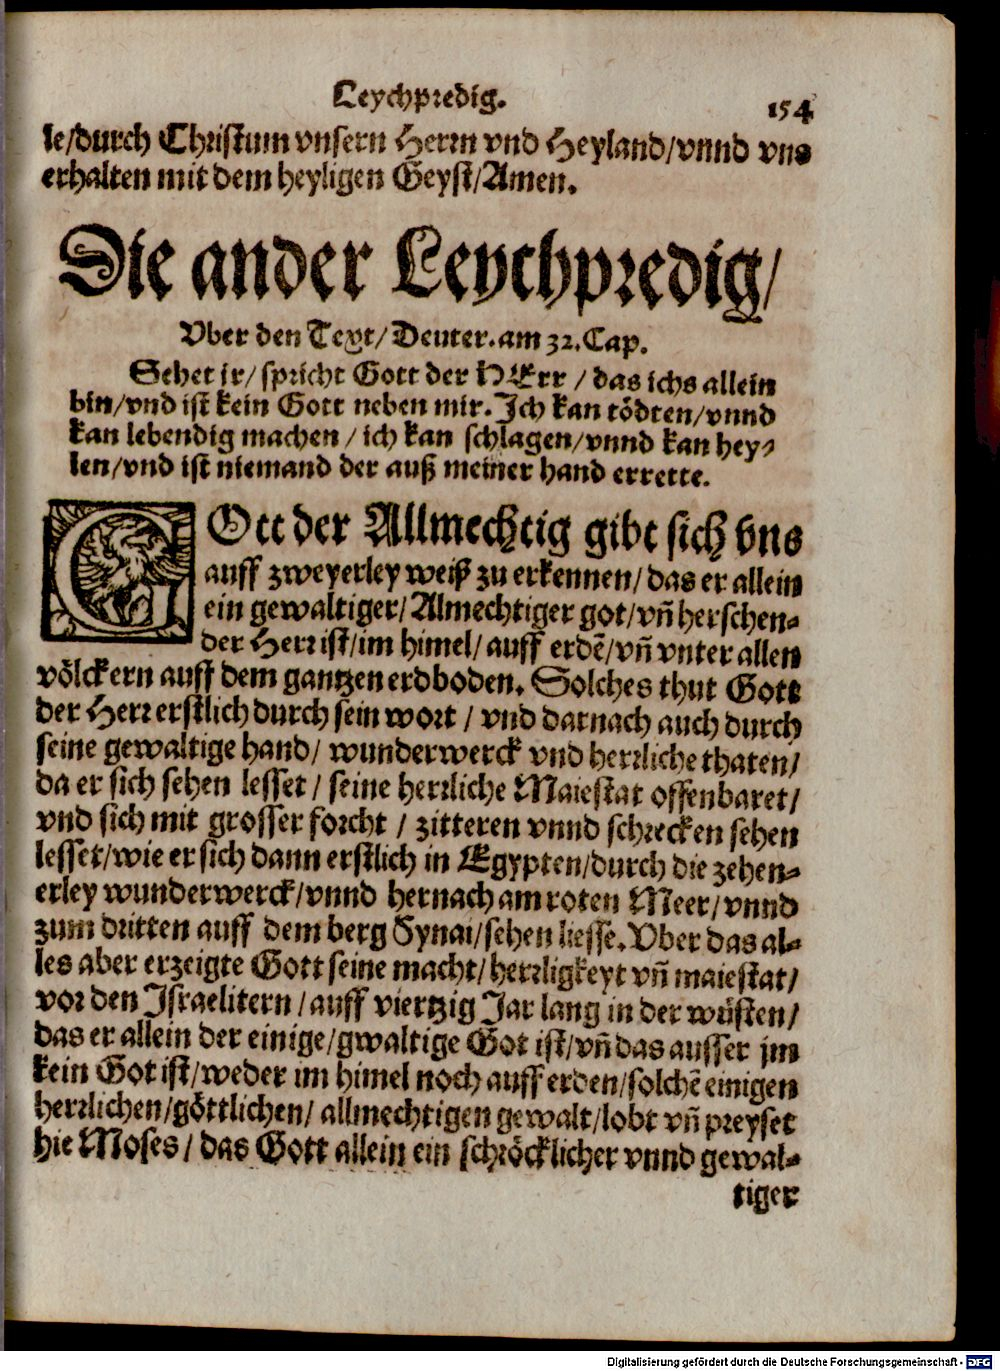 Leychpredig. 154
le/durch Christum vnsern Herrn vnd Heyland/vnnd vns
erhalten mit dem heyligen Geyst/Amen.
Die ander Leychpredig/
Vber den Text/Deuter.am 32.Cap.
Sehet jr/spricht Gott der HErr/das ichs allein
bin/vnd ist kein Gott neben mir. Ich kan tödten/vnnd
kan lebendig machen/ich kan schlagen/vnnd kan hey-
len/vnd ist niemand der auß meiner hand errette.
GOtt der Allmechtig gibt sich vns
auff zweyerley weiß zu erkennen/das er allein
ein gewaltiger/Almechtiger got/vñ herschen-
der Herr ist/im himel/auff erdẽ/vñ vnter allen
völckern auff dem gantzen erdboden. Solches thut Gott
der Herr erstlich durch sein wort/vnd darnach auch durch
seine gewaltige hand/wunderwerck vnd herrliche thaten/
da er sich sehen lesset/seine herrliche Maiestat offenbaret/
vnd sich mit grosser forcht/zitteren vnnd schrecken sehen
lesset/wie er sich dann erstlich in Egypten/durch die zehen-
erley wunderwerck/vnnd hernach am roten Meer/vnnd
zum dritten auff dem berg Synai/sehen liesse. Vber das al-
les aber erzeigte Gott seine macht/herrligkeyt vñ maiestat/
vor den Israelitern/auff viertzig Jar lang in der wüsten/
das er allein der einige/gwaltige Got ist/vñ das ausser jm
kein Got ist/weder im himel noch auff erden/solchẽ einigen
herrlichen/göttlichen/allmechtigen gewalt/lobt vñ preyset
hie Moses/das Gott allein ein schröcklicher vnnd gewal-
tiger
Digitalisierung gefördert durch die Deutsche Forschungsgemeinschaft - DFG